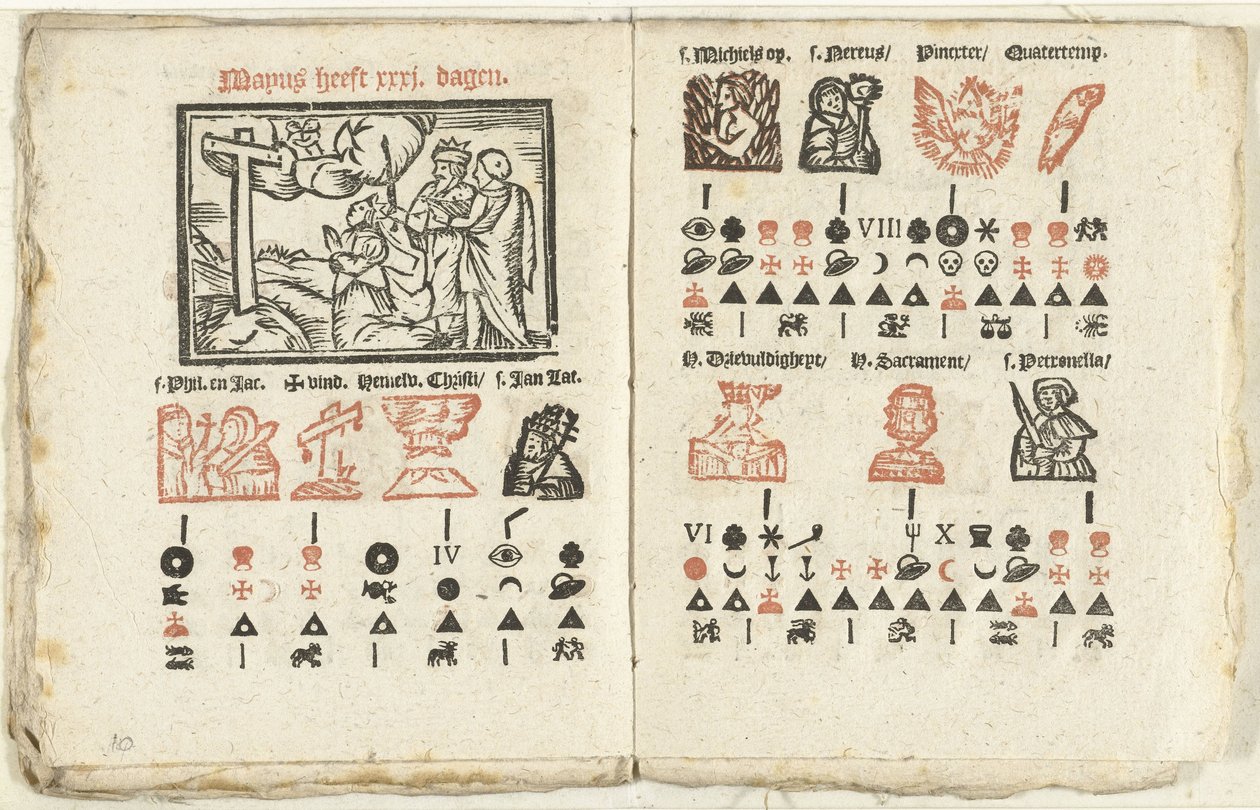 Mayus heeft xxxj. dagen.
s. Phil. en Jac. ✠ vind. Hemelv. Christi/ s. Jan Lat.
IV
10
s. Michiels op. s. Nereus/ Pincxter/ Quatertemp.
VIII
H. Drievuldigheyt/ H. Sacrament/ s. Petronella/
VI X